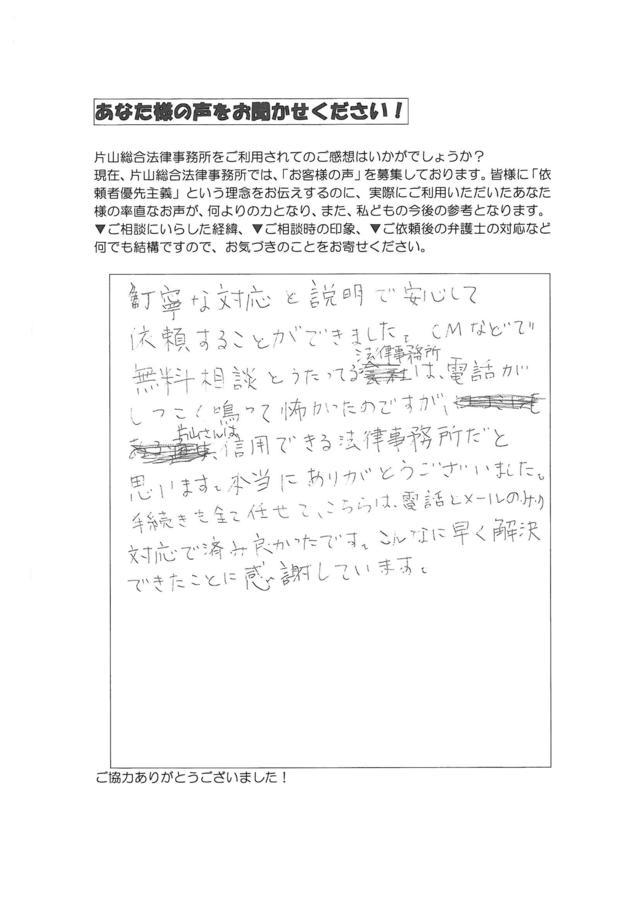 あなた様の声をお聞かせください！
片山総合法律事務所をご利用されてのご感想はいかがでしょうか？
現在、片山総合法律事務所では、「お客様の声」を募集しております。皆様に「依
頼者優先主義」という理念をお伝えするのに、実際にご利用いただいたあなた
様の率直なお声が、何よりの力となり、また、私どもの今後の参考となります。
▼ご相談にいらした経緯、▼ご相談時の印象、▼ご依頼後の弁護士の対応など
何でも結構ですので、お気づきのことをお寄せください。
丁寧な対応と説明で安心して
依頼することができました。CMなどで
法律事務所
無料相談とうたってるは、電話が
しつこく鳴って怖かったのですが、
片山さんは
信用できる法律事務所だと
思います。本当にありがとうございました。
手続きを全て任せて、こちらは、電話とメールのみの
対応で済み良かったです。こんなに早く解決
できたことに感謝しています。
ご協力ありがとうございました！